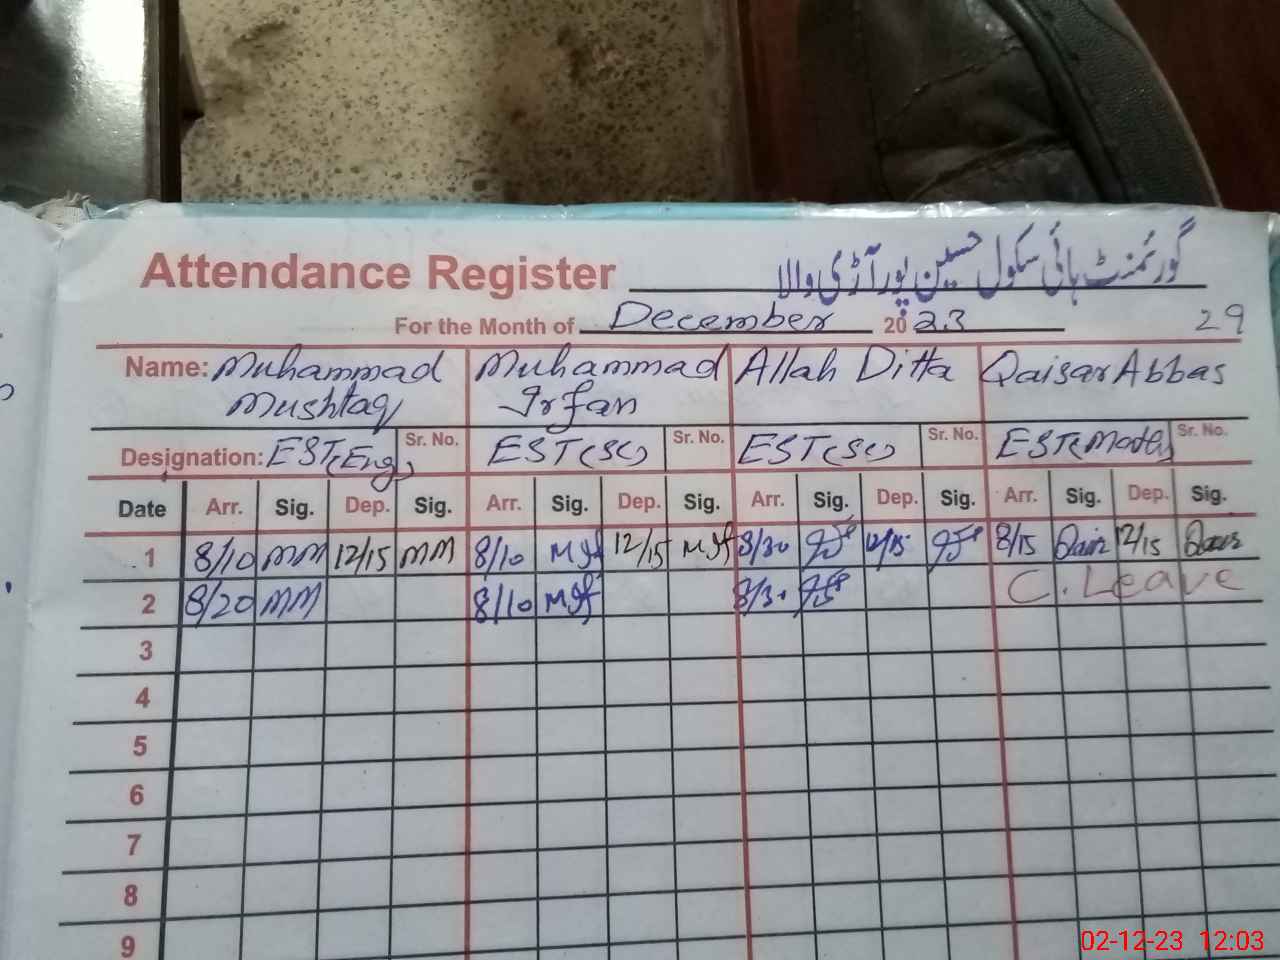 Attendance Register گورنمنٹ ہائی سکول حسین پور آڑی والا
For the Month of December 2023 29
Name: Muhammad Mushtaq Muhammad Irfan Allah Ditta Qaisar Abbas
Designation: EST(Eng) Sr. No. EST(SC) Sr. No. EST(SC) Sr. No. EST(Math) Sr. No.
Date Arr. Sig. Dep. Sig. Arr. Sig. Dep. Sig. Arr. Sig. Dep. Sig. Arr. Sig. Dep. Sig.
1 8/10 MM 12/15 MM 8/10 12/15 8/30 12/15 8/15 12/15
2 8/20 MM 8/10 8/30 C. Leave
3
4
5
6
7
8
9
02-12-23 12:03